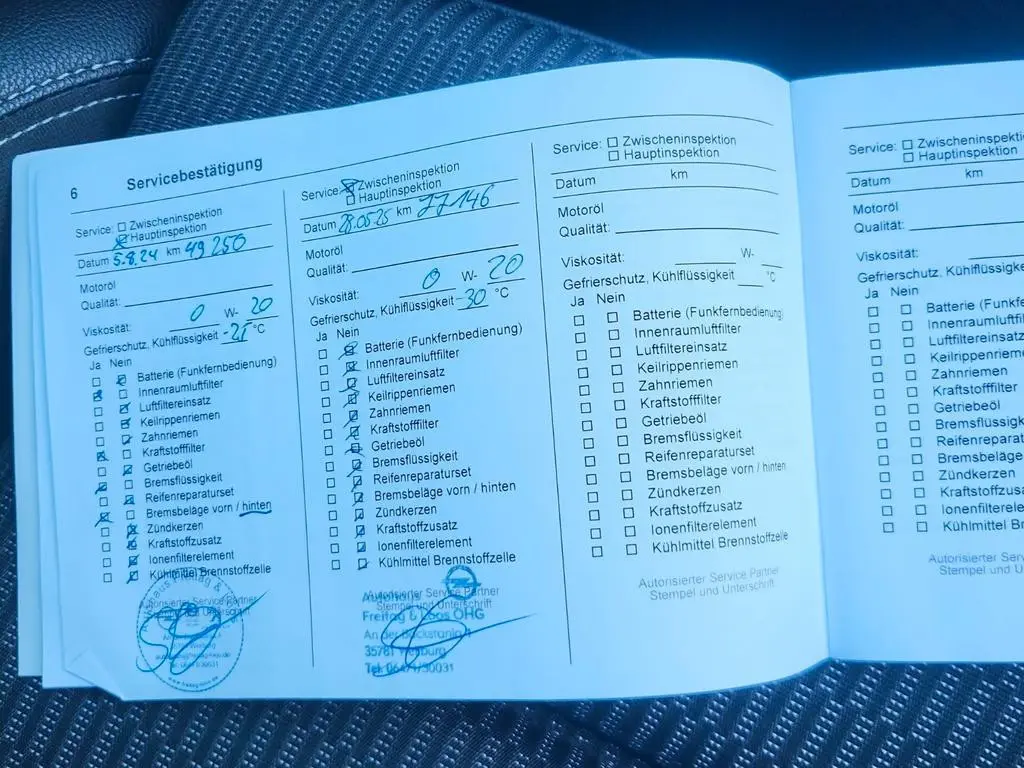 6 Servicebestätigung
Service: Zwischeninspektion
Hauptinspektion
Datum 5.8.24 km 49 250
Motoröl
Qualität:
Viskosität: 0 W- 20
Gefrierschutz, Kühlflüssigkeit -21 °C
Ja Nein
Batterie (Funkfernbedienung)
Innenraumluftfilter
Luftfiltereinsatz
Keilrippenriemen
Zahnriemen
Kraftstofffilter
Getriebeöl
Bremsflüssigkeit
Reifenreparaturset
Bremsbeläge vorn / hinten
Zündkerzen
Kraftstoffzusatz
Ionenfilterelement
Kühlmittel Brennstoffzelle
Autorisierter Service Partner
Stempel und Unterschrift
Service: Zwischeninspektion
Hauptinspektion
Datum 28.05.25 km 77 146
Motoröl
Qualität:
Viskosität: 0 W- 20
Gefrierschutz, Kühlflüssigkeit -30 °C
Ja Nein
Batterie (Funkfernbedienung)
Innenraumluftfilter
Luftfiltereinsatz
Keilrippenriemen
Zahnriemen
Kraftstofffilter
Getriebeöl
Bremsflüssigkeit
Reifenreparaturset
Bremsbeläge vorn / hinten
Zündkerzen
Kraftstoffzusatz
Ionenfilterelement
Kühlmittel Brennstoffzelle
Autorisierter Service Partner
Stempel und Unterschrift
Autohaus
Freitag & Loos OHG
An der Backstania
35781
Tel. 06471/30031
Service: Zwischeninspektion
Hauptinspektion
Datum km
Motoröl
Qualität:
Viskosität: W-
Gefrierschutz, Kühlflüssigkeit °C
Ja Nein
Batterie (Funkfernbedienung)
Innenraumluftfilter
Luftfiltereinsatz
Keilrippenriemen
Zahnriemen
Kraftstofffilter
Getriebeöl
Bremsflüssigkeit
Reifenreparaturset
Bremsbeläge vorn / hinten
Zündkerzen
Kraftstoffzusatz
Ionenfilterelement
Kühlmittel Brennstoffzelle
Autorisierter Service Partner
Stempel und Unterschrift
Service: Zwischeninspekti
Hauptinspektion
Datum km
Motoröl
Qualität:
Viskosität:
Gefrierschutz, Kühlflüssigke
Ja Nein
Batterie (Funkfe
Innenraumluftfi
Luftfiltereinsatz
Keilrippenrieme
Zahnriemen
Kraftstofffilter
Getriebeöl
Bremsflüssigk
Reifenreparat
Bremsbeläge
Zündkerzen
Kraftstoffzusa
Ionenfiltereler
Kühlmittel Br
Autorisierter Serv
Stempel und U